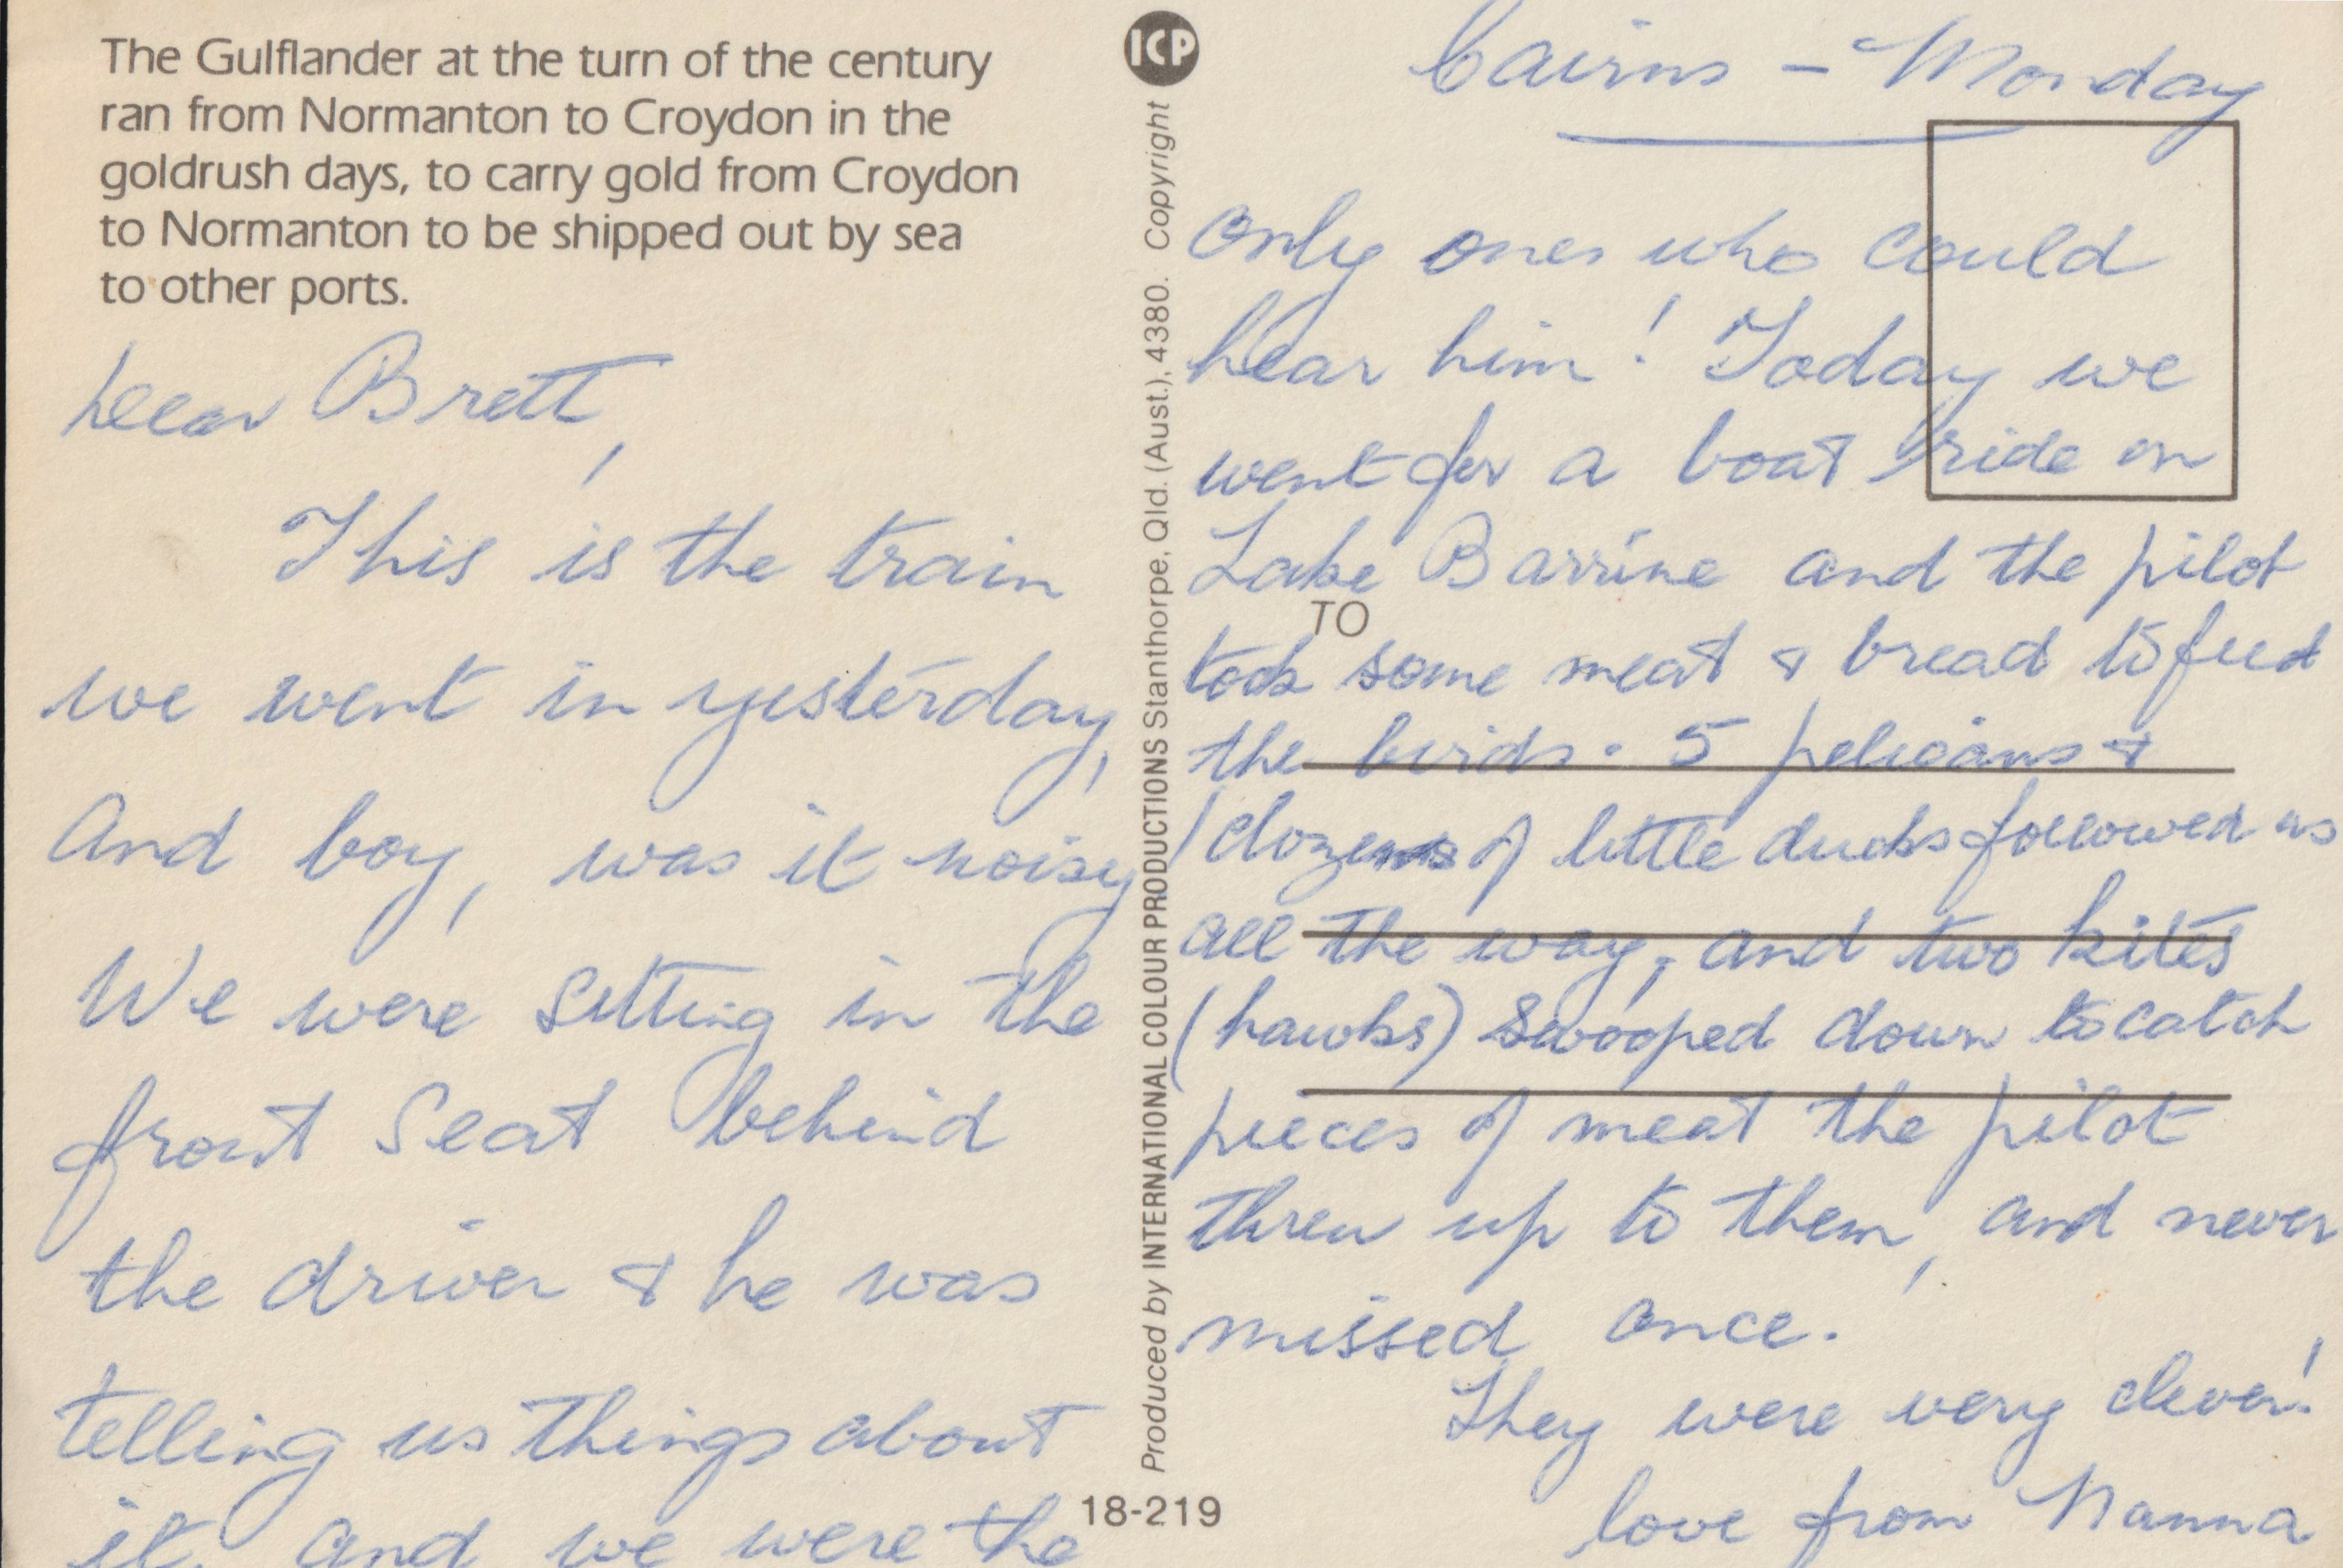 The Gulflander at the turn of the century
ran from Normanton to Croydon in the
goldrush days, to carry gold from Croydon
to Normanton to be shipped out by sea
to other ports.
Dear Brett,
This is the train
we went in yesterday,
and boy, was it noisy
We were sitting in the
front seat behind
the driver & he was
telling us things about
it, and we were the
ICP
Produced by INTERNATIONAL COLOUR PRODUCTIONS Stanthorpe, Qld. (Aust.), 4380. Copyright
18-219
Cairns - Monday
only ones who could
hear him! Today we
went for a boat ride on
Lake Barrine and the pilot
TO
took some meat & bread to feed
the birds. 5 pelicans &
dozens of little ducks followed us
all the way, and two kites
(hawks) swooped down to catch
pieces of meat the pilot
threw up to them, and never
missed once.
They were very clever!
love from Nanna